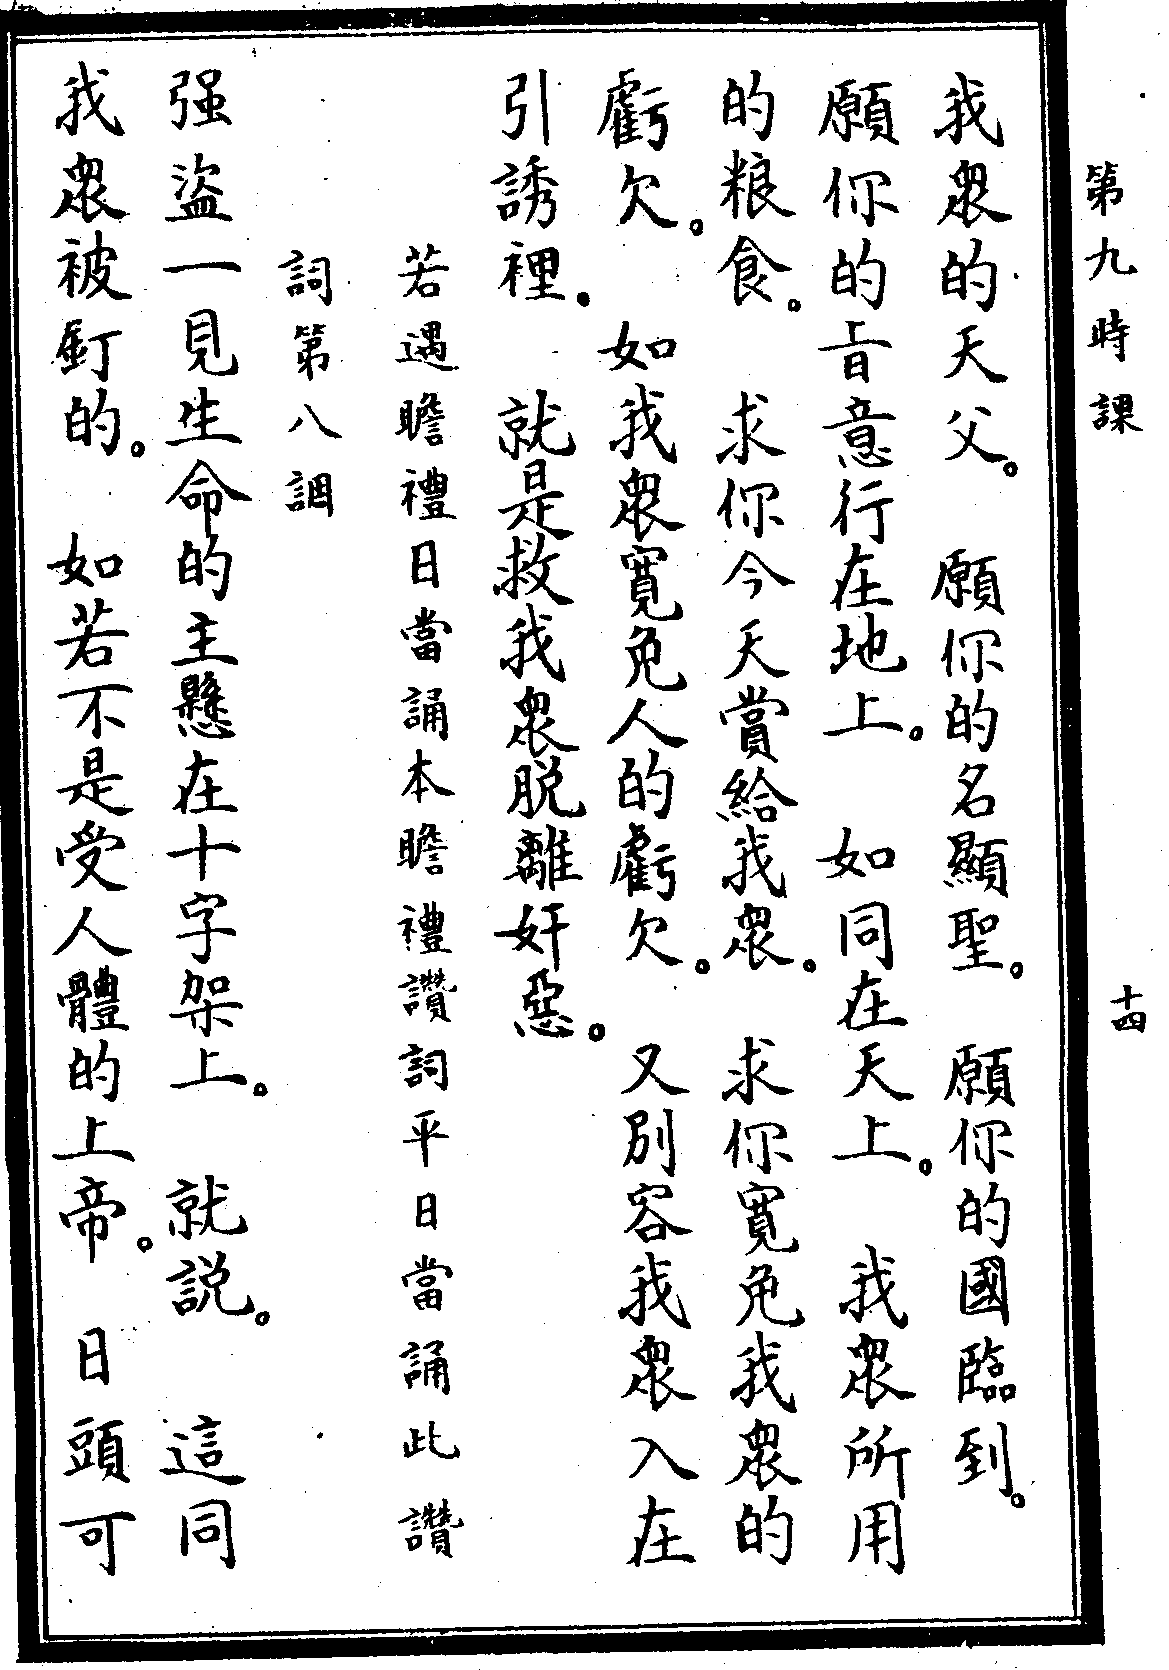 第九時課 十四
我眾的天父。 願你的名顯聖。 願你的國臨到。
願你的旨意行在地上。 如同在天上。 我眾所用
的粮食。 求你今天賞給我眾。 求你寬免我眾的
虧欠。 如我眾寬免人的虧欠。 又別容我眾入在
引誘裡。 就是救我眾脫離奸惡。
若遇瞻禮日當誦本瞻禮讚詞平日當誦此讚
詞第八調
强盜一見生命的主懸在十字架上。 就説。 這同
我眾被釘的。 如若不是受人體的上帝。 日頭可